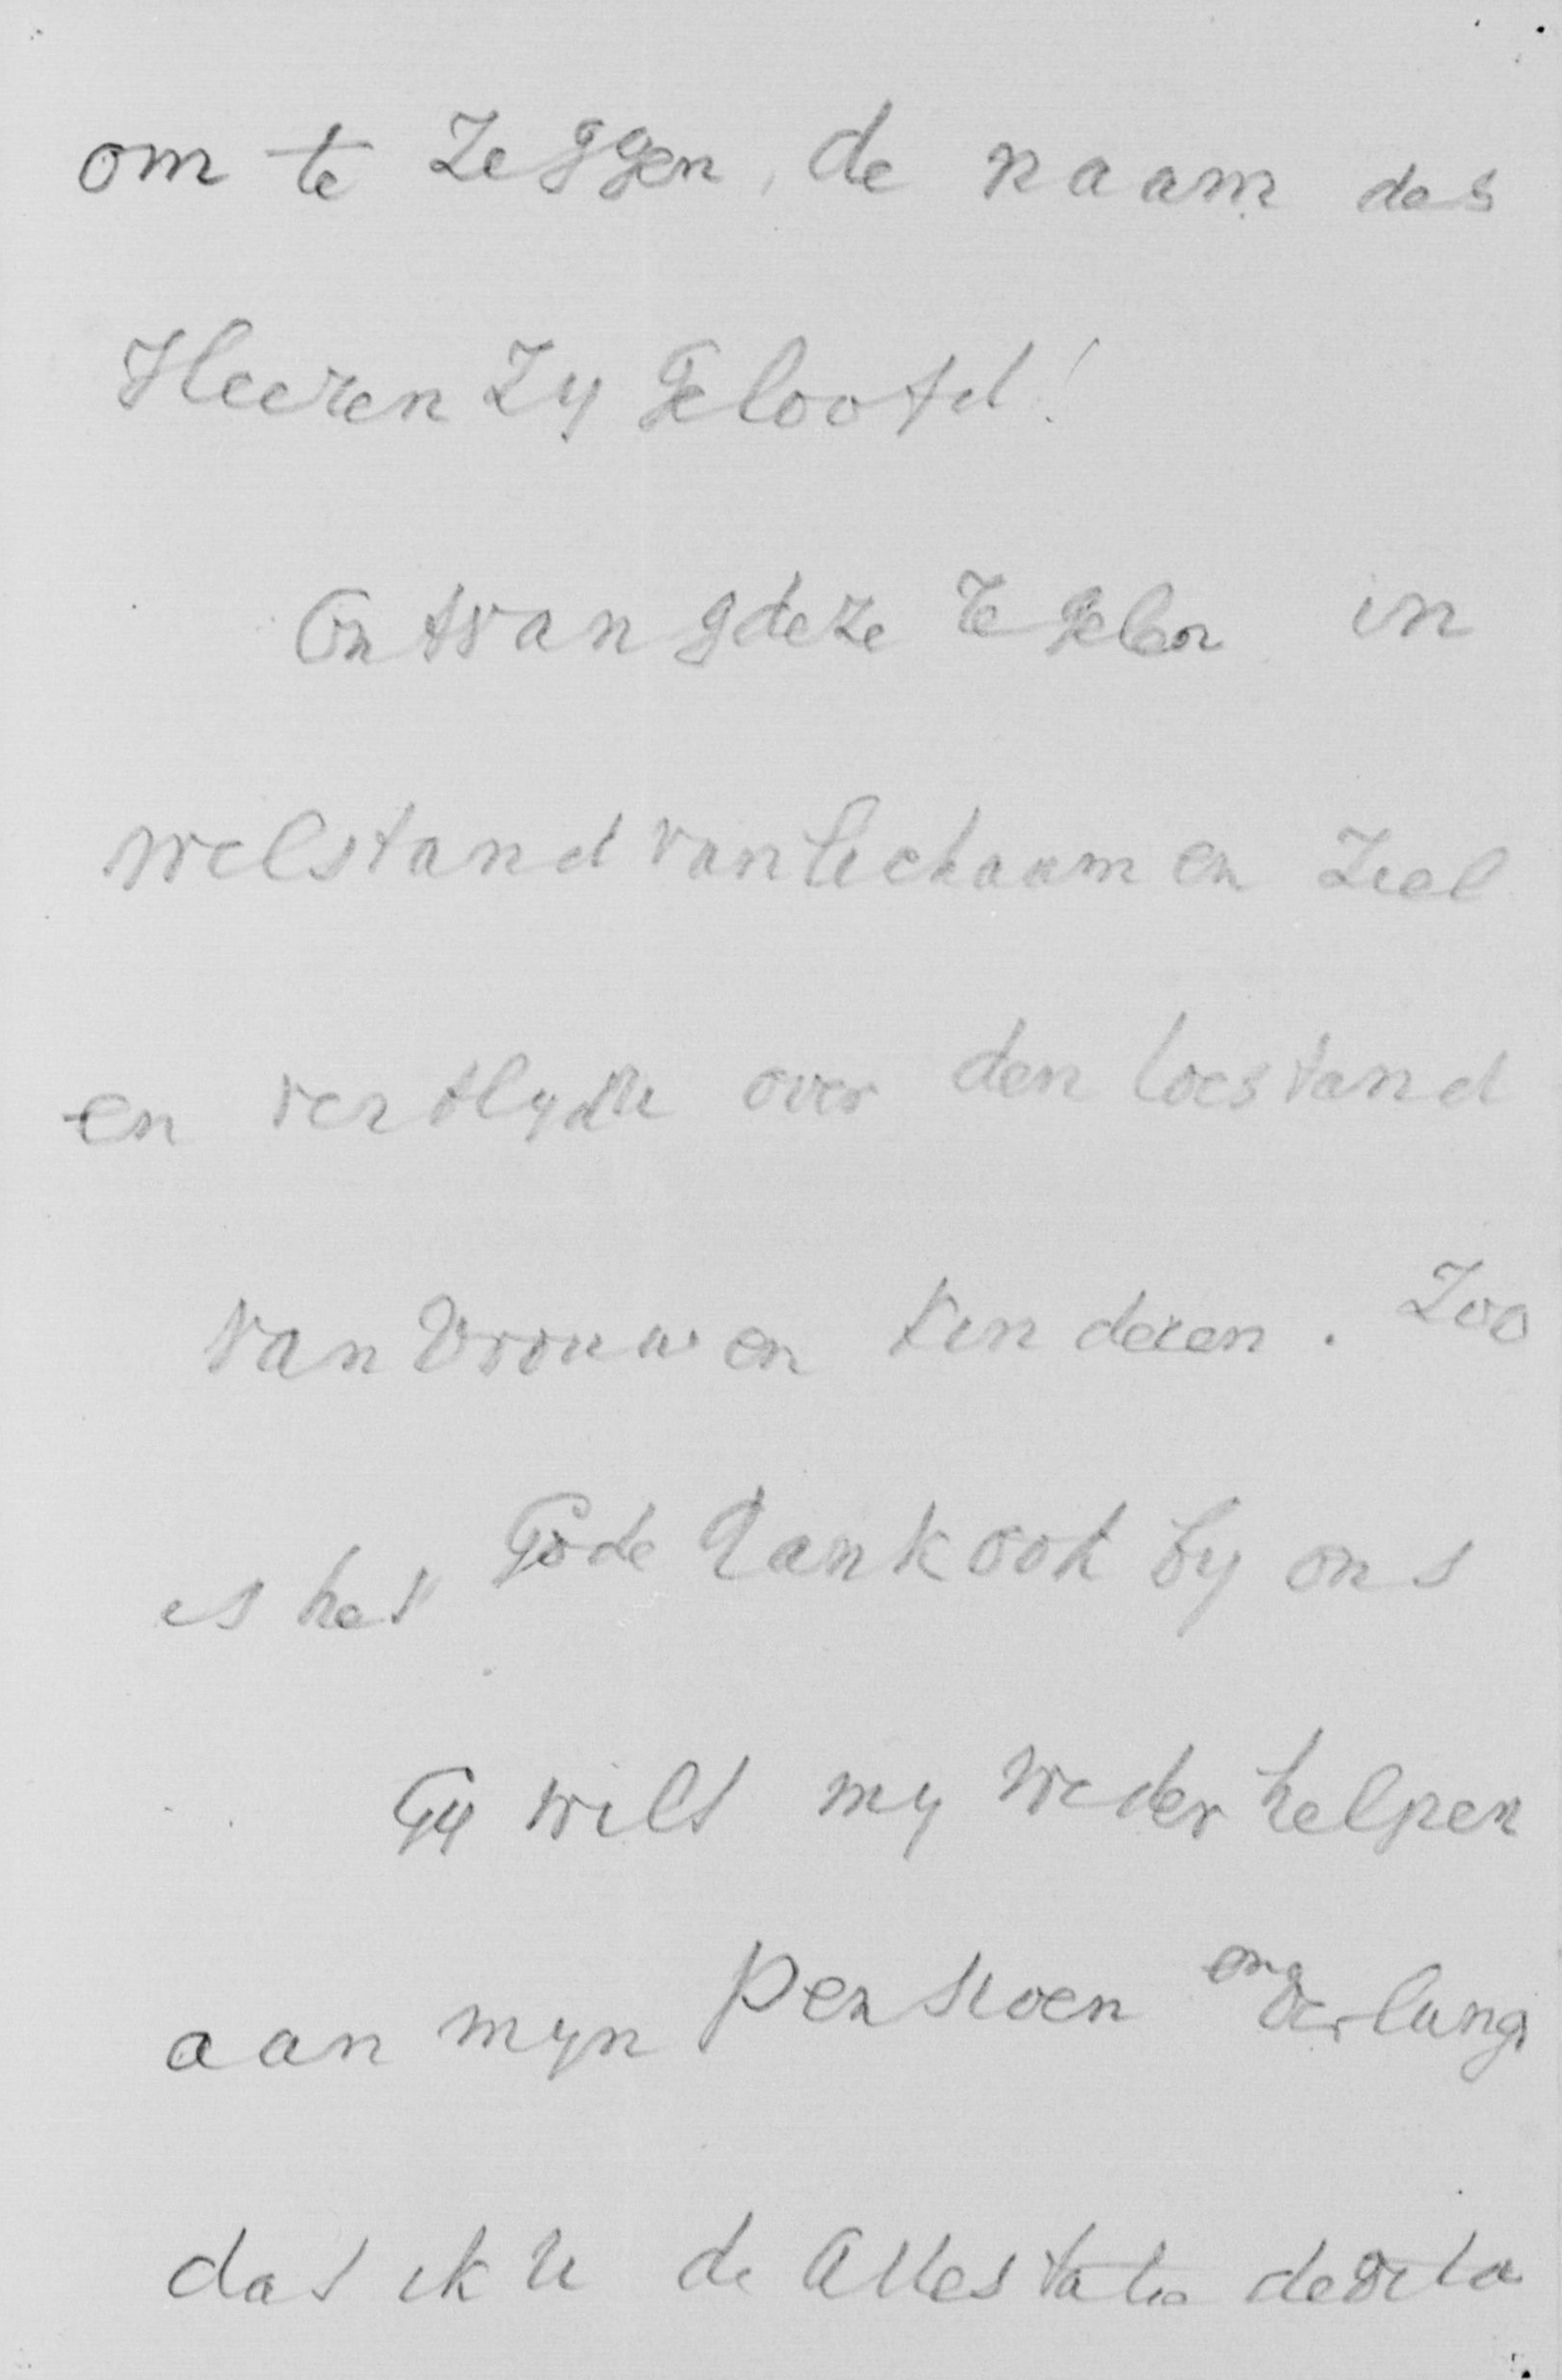 om te zeggen, de naam des
Heeren zy geloofd!
Ontvang deze regelen in
welstand van lichaam en ziel
en verblyd u over den toestand
van Vrouw en kinderen. Zoo
is het Gode dank ook by ons
Gy wilt my weder helpen
aan myn Pensioen en verlang
dat ik U de Attestatie de vita